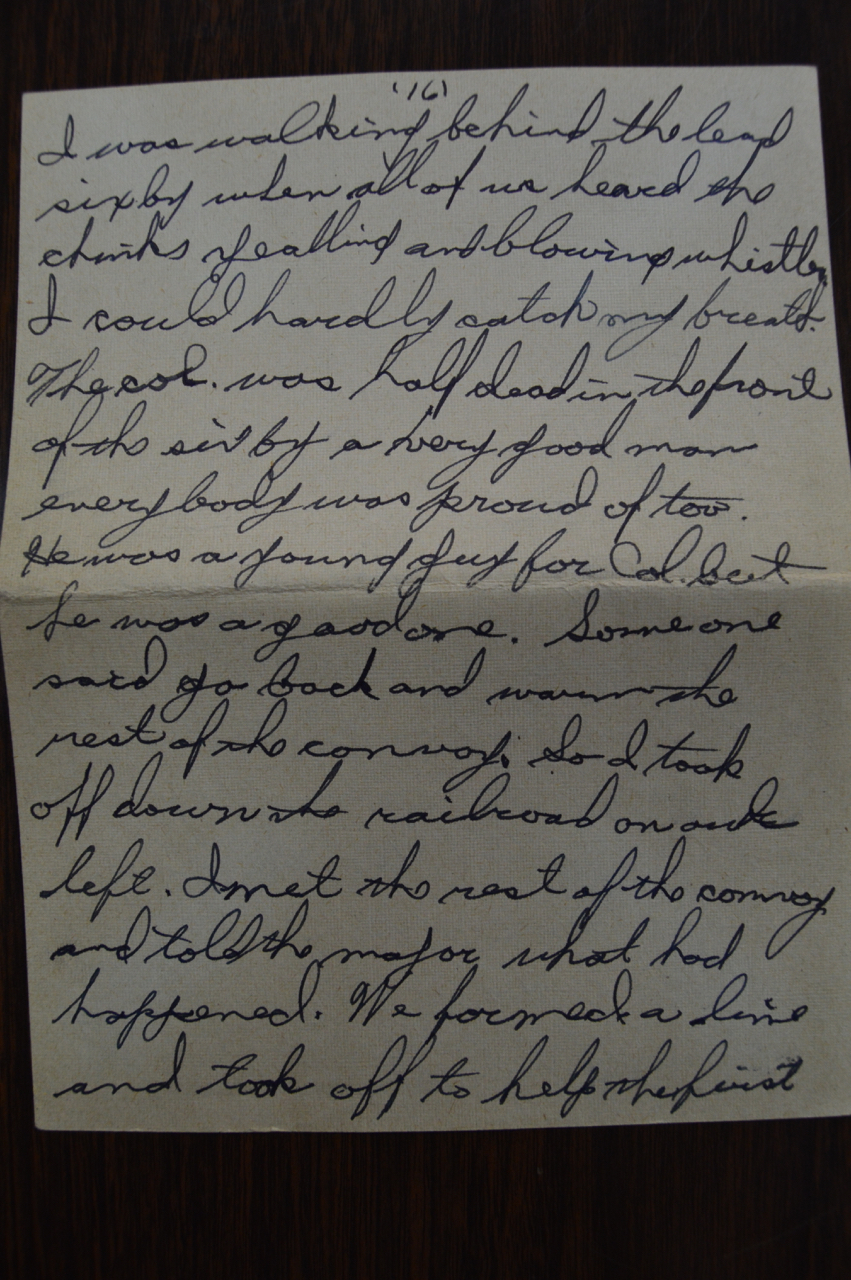 '16'
I was walking behind the lead
sixby when all of us heard the
chinks yealling and blowing whistles
I could hardly catch my breath.
The col. was half dead in the front
of the six by a very good man
everybody was proud of too.
He was a young guy for Col. but
he was a good one. Someone
said go back and warn the
rest of the convoy. So I took
off down the railroad on our
left. I met the rest of the convoy
and told the major what had
happened. We formed a line
and took off to help the first